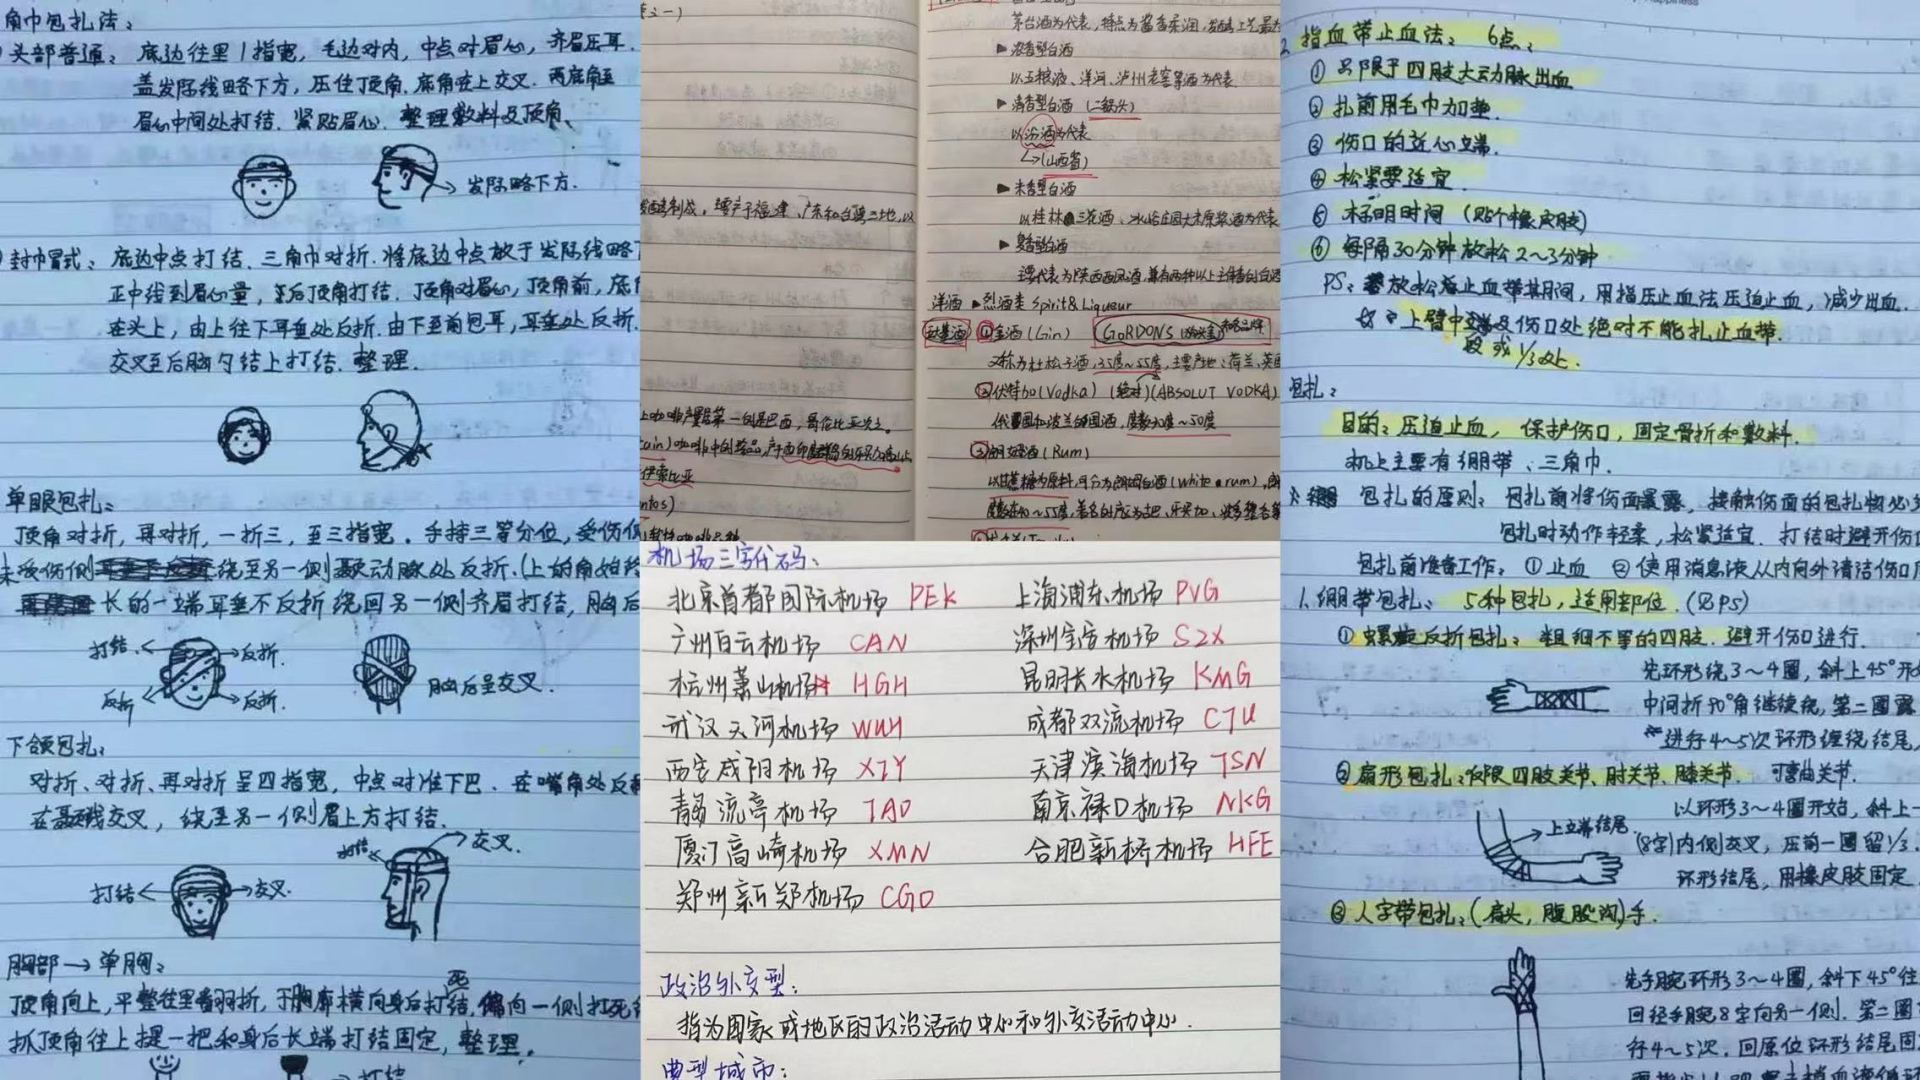 角巾包扎法：
头部普通：底边往里1指宽，毛边对内，中点对眉心，齐眉压耳
盖发际线略下方，压住顶角，底角在上交叉．两底角至
眉心中间处打结．紧贴眉心．整理敷料及顶角、
发际略下方．
封巾冒式：底边中点打结．三角巾对折．将底边中点放于发际线略
正中线到眉心量，在后顶角打结．顶角对眉心，顶角前，底
在头上，由上往下耳垂处反折．由下至前包耳，耳垂处反折．
交叉至后脑勺结上打结．整理．
单眼包扎：
顶角对折，再对折，一折三，至三指宽．手持三等分位，受伤侧
未受伤侧绕至另一侧颞动脉处反折．（上的角始终
长的一端耳垂不反折绕回另一侧齐眉打结，脑后
打结． 反折．
反折 反折． 脑后呈交叉．
下颌包扎：
对折、对折、再对折呈四指宽，中点对准下巴．在嘴角处反
在颞浅交叉，绕至另一侧眉上方打结．
打结 交叉．
打结 交叉．
胸部→单胸：
顶角向上，平整往里翻折，于胸廓横向身后打结，偏向一侧打死
抓顶角往上提一把和身后长端打结固定，整理．
打结
茅台酒为代表，特点为酱香柔润，发酵工艺最为
▶浓香型白酒
以五粮液、洋河、泸州老窖等酒为代表
▶清香型白酒（二锅头）
以汾酒为代表
↳（山西省）
▶米香型白酒
以桂林三花酒、冰峪庄园大米原浆酒为代表
▶复香型白酒
主要代表为陕西西凤酒，兼有两种以上主体香的白酒
发酵制成．主要产于福建、广东和台湾三地，以
洋酒 ▶烈酒类 Spirit&Liqueur
基酒 ①金酒(Gin) GORDONS
又称为杜松子酒，35度～55度，主要产地：荷兰、英国
②伏特加(Vodka)（绝对）(ABSOLUT VODKA)
俄国和波兰的国酒，～50度
③朗姆酒(Rum)
以甘蔗糖为原料，可分为朗姆白酒(white rum)，
咖啡产量第一的是巴西，哥伦比亚次之．
机场三字代码：
北京首都国际机场 PEK 上海浦东机场 PVG
广州白云机场 CAN 深圳宝安机场 SZX
杭州萧山机场 HGH 昆明长水机场 KMG
武汉天河机场 WUH 成都双流机场 CTU
西安咸阳机场 XIY 天津滨海机场 TSN
青岛流亭机场 TAO 南京禄口机场 NKG
厦门高崎机场 XMN 合肥新桥机场 HFE
郑州新郑机场 CGO
政治外交型：
指为国家或地区的政治活动中心和外交活动中心．
典型城市：
指血带止血法：6点：
①只限于四肢大动脉出血
②扎前用毛巾加垫．
③伤口的近心端．
④松紧要适宜．
⑤标明时间（贴个橡皮胶）
⑥每隔30分钟放松2～3分钟
PS：放松止血带期间，用指压止血法压迫止血，减少出血．
上臂中段及伤口处绝对不能扎止血带．
或1/3处．
包扎：
目的：压迫止血，保护伤口，固定骨折和敷料．
机上主要有绷带、三角巾．
包扎的原则：包扎前将伤面暴露，接触伤面的包扎物必
包扎时动作轻柔，松紧适宜．打结时避开伤
包扎前准备工作：①止血 ②使用消毒液从内向外清洁伤口
1.绷带包扎：5种包扎，适用部位．（PS）
①螺旋反折包扎：粗细不等的四肢．避开伤口进行．
先环形绕3～4圈，斜上45°形
中间折90°角继续绕，第二圈露
进行4～5次环形缠绕结尾，
②扇形包扎：仅限四肢关节、肘关节、膝关节．可弯曲关节．
以环形3～4圈开始，斜上
上端结尾．（8字）内侧交叉，压前一圈留1/3．
环形结尾，用橡皮胶固定
③人字带包扎：（肩头，腹股沟）手．
先手腕环形3～4圈，斜下45°往
回经手腕8字向另一侧．第二圈
行4～5次．回原位环形结尾固